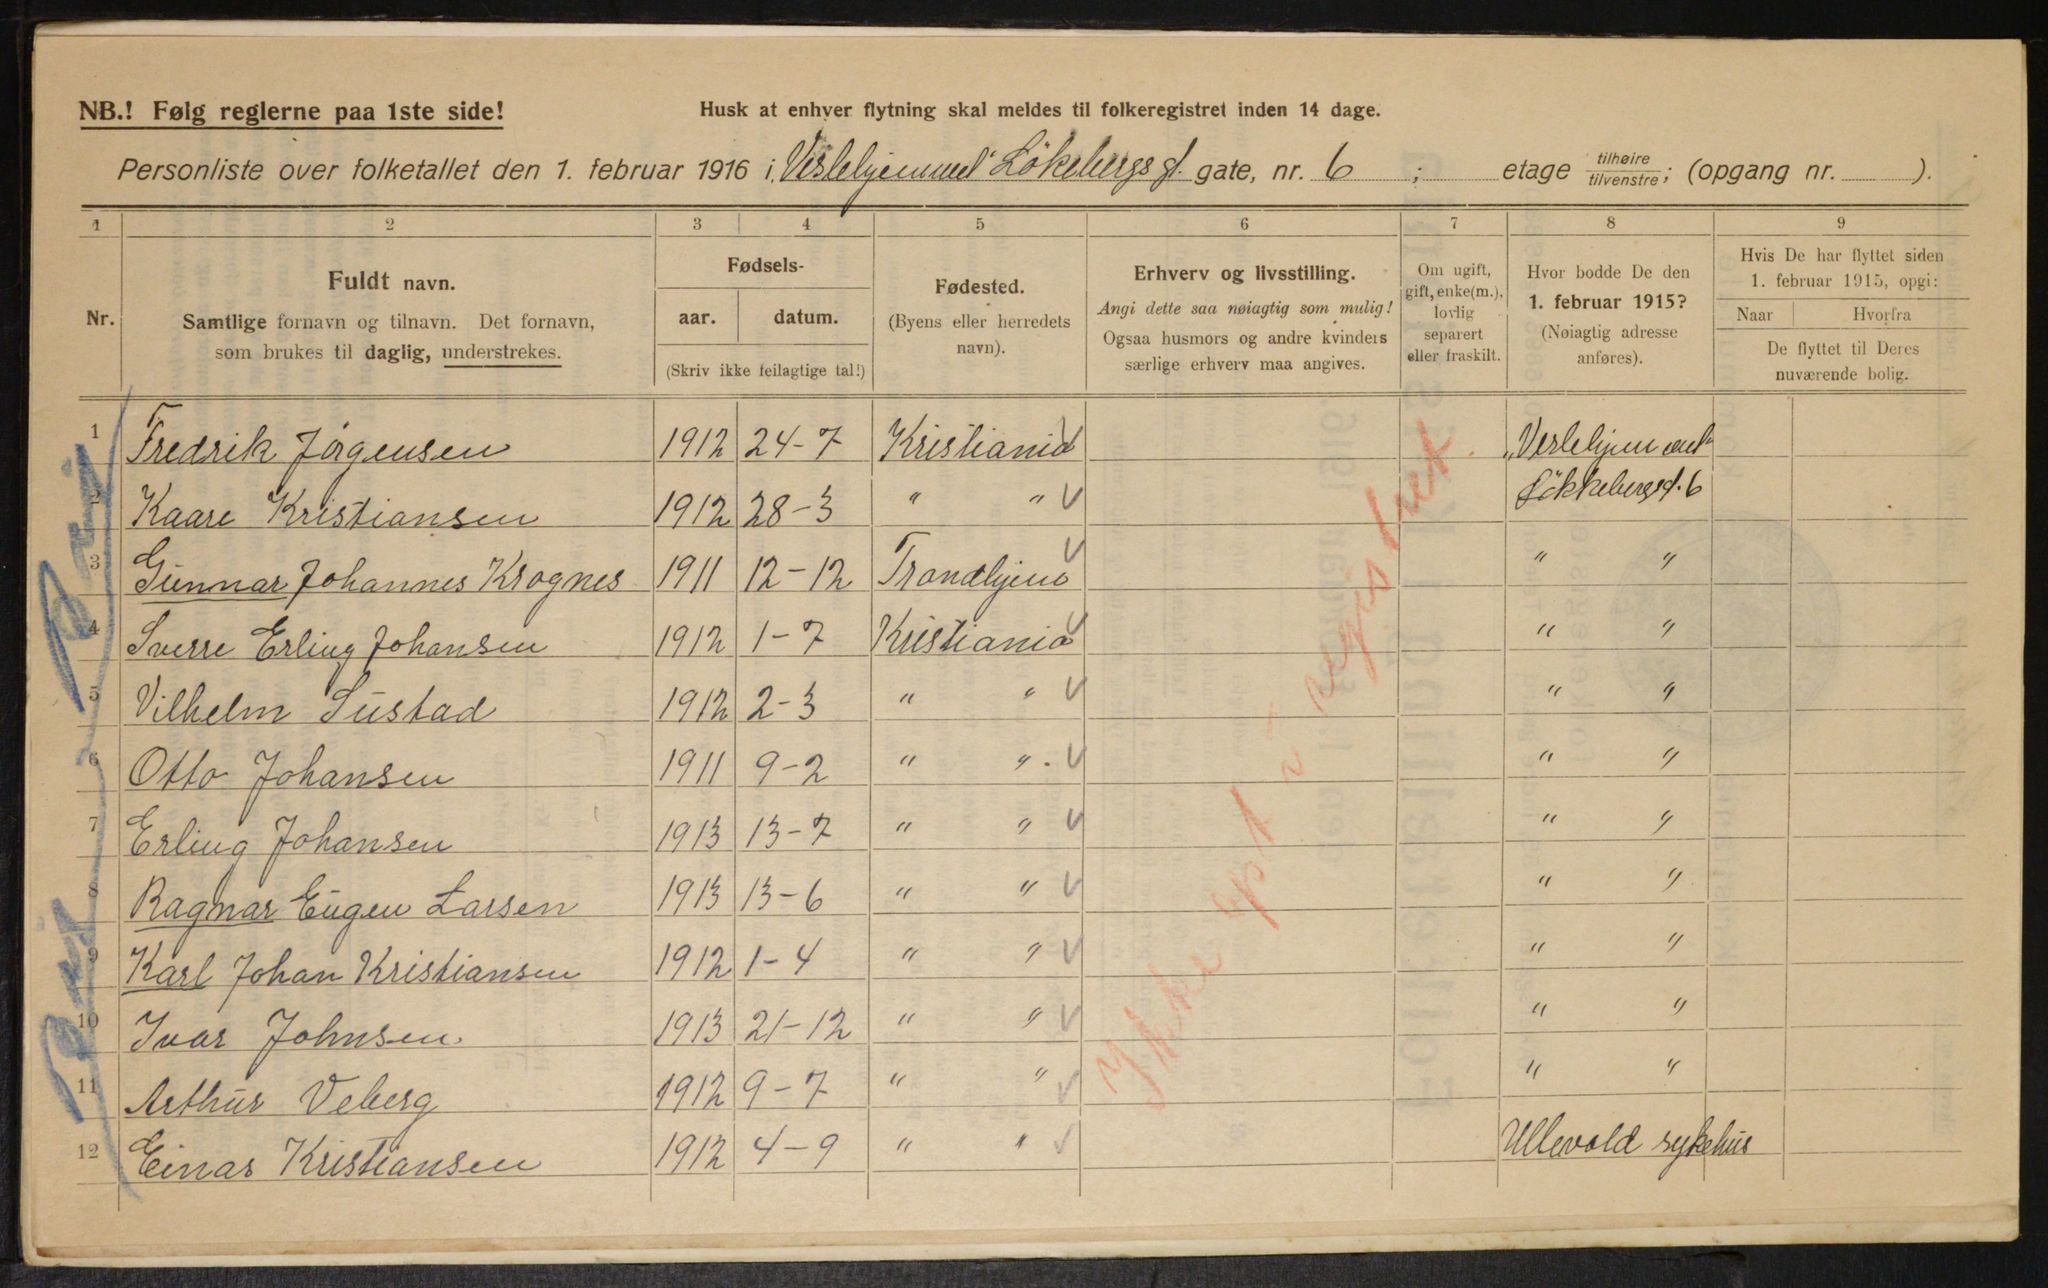 NB.! Følg reglerne paa 1ste side! Husk at enhver flytning skal meldes til folkeregistret inden 14 dage.
Personliste over folketallet den 1. februar 1916 i „Veslehjemmet" Lökebergs gt. gate, nr. 6 ; etage tilhøire / tilvenstre ; (opgang nr. ).
1 2 3 4 5 6 7 8 9
Nr.
Fuldt navn.
Samtlige fornavn og tilnavn. Det fornavn,
som brukes til daglig, understrekes.
Fødsels-
aar. datum.
(Skriv ikke feilagtige tal!)
Fødested.
(Byens eller herredets
navn).
Erhverv og livsstilling.
Angi dette saa nøiagtig som mulig!
Ogsaa husmors og andre kvinders
særlige erhverv maa angives.
Om ugift,
gift, enke(m.),
lovlig
separert
eller fraskilt.
Hvor bodde De den
1. februar 1915?
(Nøiagtig adresse
anføres).
Hvis De har flyttet siden
1. februar 1915, opgi:
Naar Hvorfra
De flyttet til Deres
nuværende bolig.
1 Fredrik Jørgensen 1912 24-7 Kristiania „Veslehjemmet"
2 Kaare Kristiansen 1912 28-3 " " Lökkebergsgt. 6
3 Gunnar Johannes Krognes 1911 12-12 Trondhjem " "
4 Sverre Erling Johansen 1912 1-7 Kristiania " "
5 Vilhelm Sustad 1912 2-3 " " " "
6 Otto Johansen 1911 9-2 " " " "
7 Erling Johansen 1913 13-7 " " " "
8 Ragnar Eugen Larsen 1913 13-6 " " " "
9 Karl Johan Kristiansen 1912 1-4 " " " "
10 Ivar Johnsen. 1913 21-12 " " " "
11 Arthur Veberg 1912 9-7 " " " "
12 Einar Kristiansen 1912 4-9 " " Ullevold sykehus
Ikke opt i registret